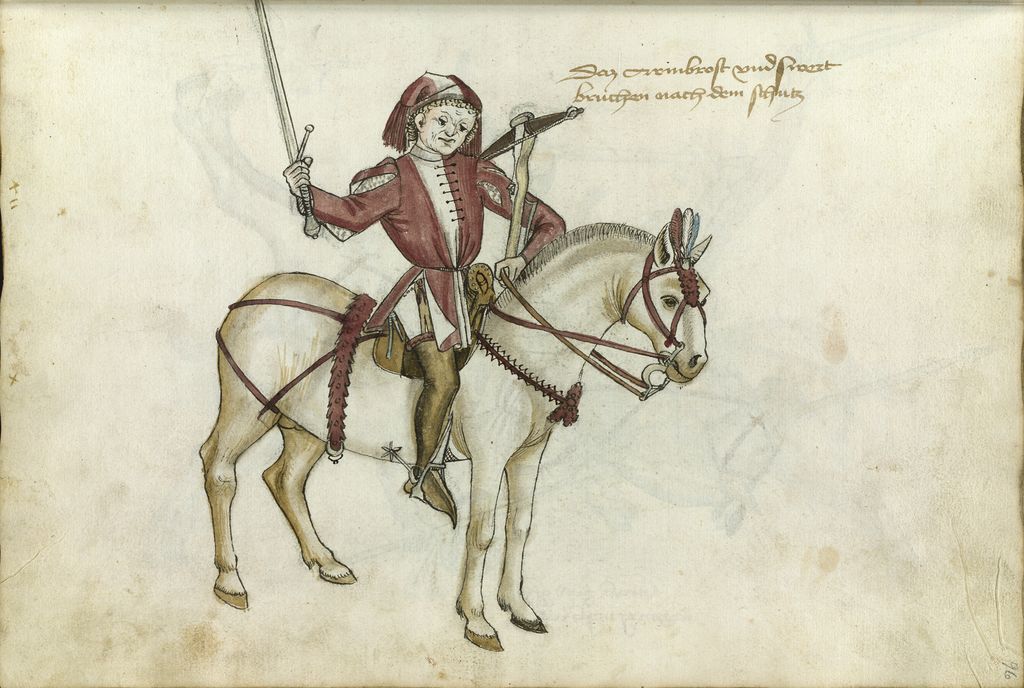 Daz armbrost vnd swert
bruchen nach dem schutz
96